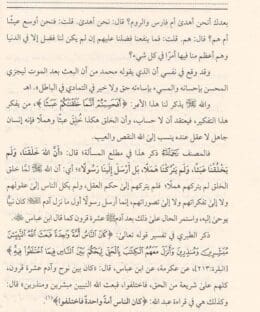 بعدك أنحن أهدى أم فارس والروم؟ قال: نحن أهدى. قلت: فنحن أوسع عيشًا
أم هم؟ قال: هم. قلت: فما ينفعنا فضلنا عليهم إن لم يكن لنا فضل إلا في الدنيا
وهم أعظم منا فيها أمرًا في كل شيء؟
وقد وقع في نفسي أن الذي يقوله محمد من أن البعث بعد الموت ليجزى
المحسن بإحسانه والمسيء بإساءته حق ولا خير في التمادي في الباطل». اهـ
والله ﷻ يذكر لنا هذا الأمر: ﴿أَفَحَسِبْتُمْ أَنَّمَا خَلَقْنَاكُمْ عَبَثًا﴾، من يفكر
هذا التفكير، فيعتقد أن لا حساب، وأن الخلق هكذا خُلِق عبثًا وهملًا فإنه إنسان
جاهل لا عقل عنده ينسب إلى الله النقص والعيب.
فالمصنف رَحِمَهُ اللهُ ذكر هذا في مطلع المسألة: قال: «أنَّ اللهَ خَلَقَنَا، وَلَم
يَخْلُقْنَا عَبَثًا، وَلَمْ يَتْرُكْنَا هَمَلًا، بَل أَرْسَلَ إِلَيْنَا رَسُولًا»؛ أي: أن الله ﷻ لما خلق
الخلق لم يتركهم هملًا، فلم يتركهم إلى حكم العقل، ولم يكل الناس إلى عقولهم
ولا إلى تفكيراتهم ولا إلى تصوراتهم، إنما أرسل رسولًا أول ما نزل آدم كان نبيًّا
يوحى إليه، واستمر الحال على ذلك بعد آدم عشرة قرون كما قال ابن عباس
ذكر الطبري في تفسير قوله تعالى: ﴿كَانَ النَّاسُ أُمَّةً وَاحِدَةً فَبَعَثَ اللَّهُ النَّبِيِّينَ
مُبَشِّرِينَ وَمُنذِرِينَ وَأَنزَلَ مَعَهُمُ الْكِتَابَ بِالْحَقِّ لِيَحْكُمَ بَيْنَ النَّاسِ فِيمَا اخْتَلَفُوا فِيهِ﴾
[البقرة: ٢١٣]، عن عكرمة، عن ابن عباس، قال: «كان بين نوح وآدم عشرة قرون،
كلهم على شريعة من الحق، فاختلفوا، فبعث الله النبيين مبشرين ومنذرين» قال:
وكذلك هي في قراءة عبد الله: «كان الناس أمة واحدة فاختلفوا»(١)